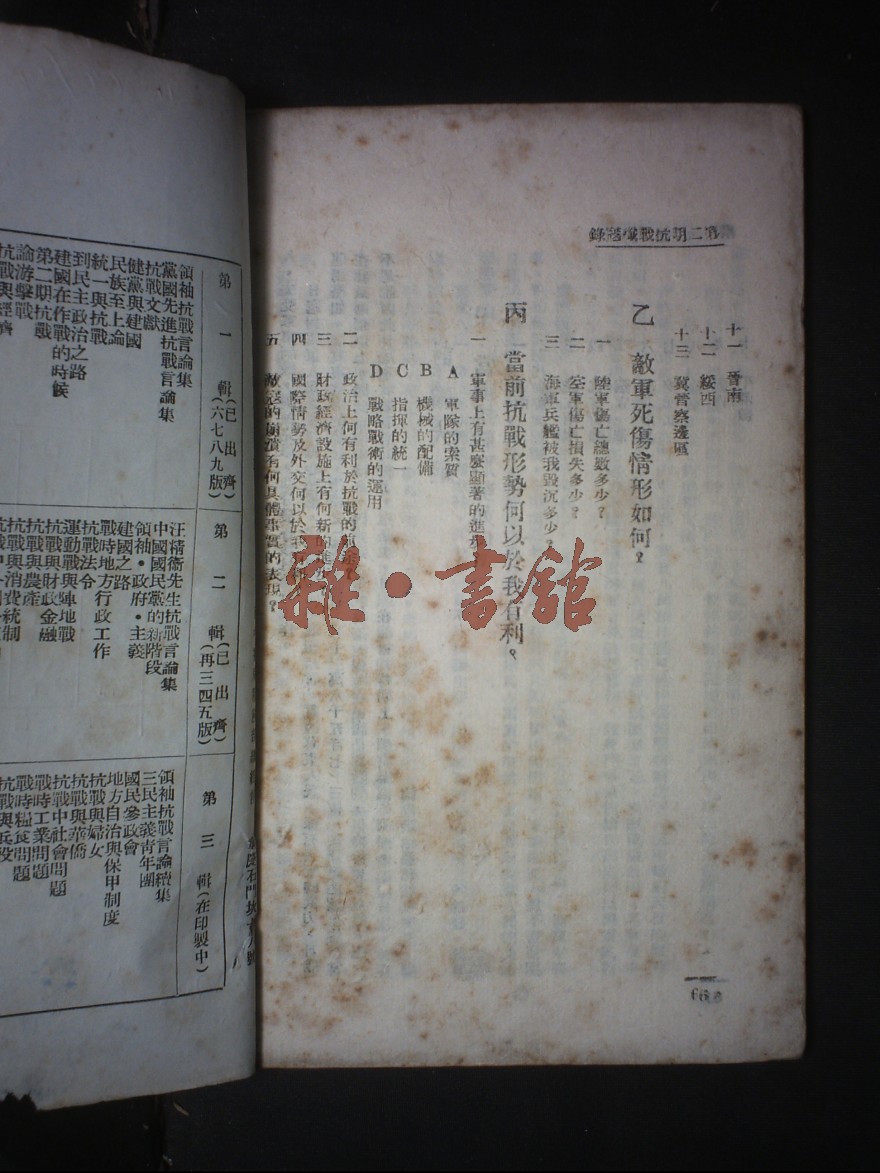 十一 晉南
十二 綏西
十三 冀晉察邊區
乙 敵軍死傷情形如何？
一 陸軍傷亡總數多少？
二 空軍傷亡損失多少？
三 海軍兵艦被我毀沉多少？
丙 當前抗戰形勢何以於我有利？
一 軍事上有甚麼顯著的進步
A 軍隊的素質
B 機械的配備
C 指揮的統一
D 戰略戰術的運用
二 政治上何有利於抗戰的
三 財政經濟設施上有何新的進
四 國際情勢及外交何以於我
五
雜·書館
第一輯（已出齊）（六七八九版）
領袖抗戰言論集
黨國先進抗戰言論集
抗戰文獻
健黨與建國
民族至上論
統一與抗戰
到民主政治之路
建國在作戰的時候
第二期抗戰
論游擊戰
抗戰與經濟
第二輯（已出齊）（再三四五版）
汪精衛先生抗戰言論集
中國國民黨的新階段
領袖·政府·主義
建國之路
戰時地方行政工作
抗戰法令
運動戰與陣地戰
抗戰與財政金融
抗戰與農產
抗戰與消費統制
第三輯（在印製中）
領袖抗戰言論續集
三民主義青年團
國民參政會
地方自治與保甲制度
抗戰與婦女
抗戰與華僑
抗戰中社會問題
戰時工業問題
戰時糧食問題
抗戰與兵役